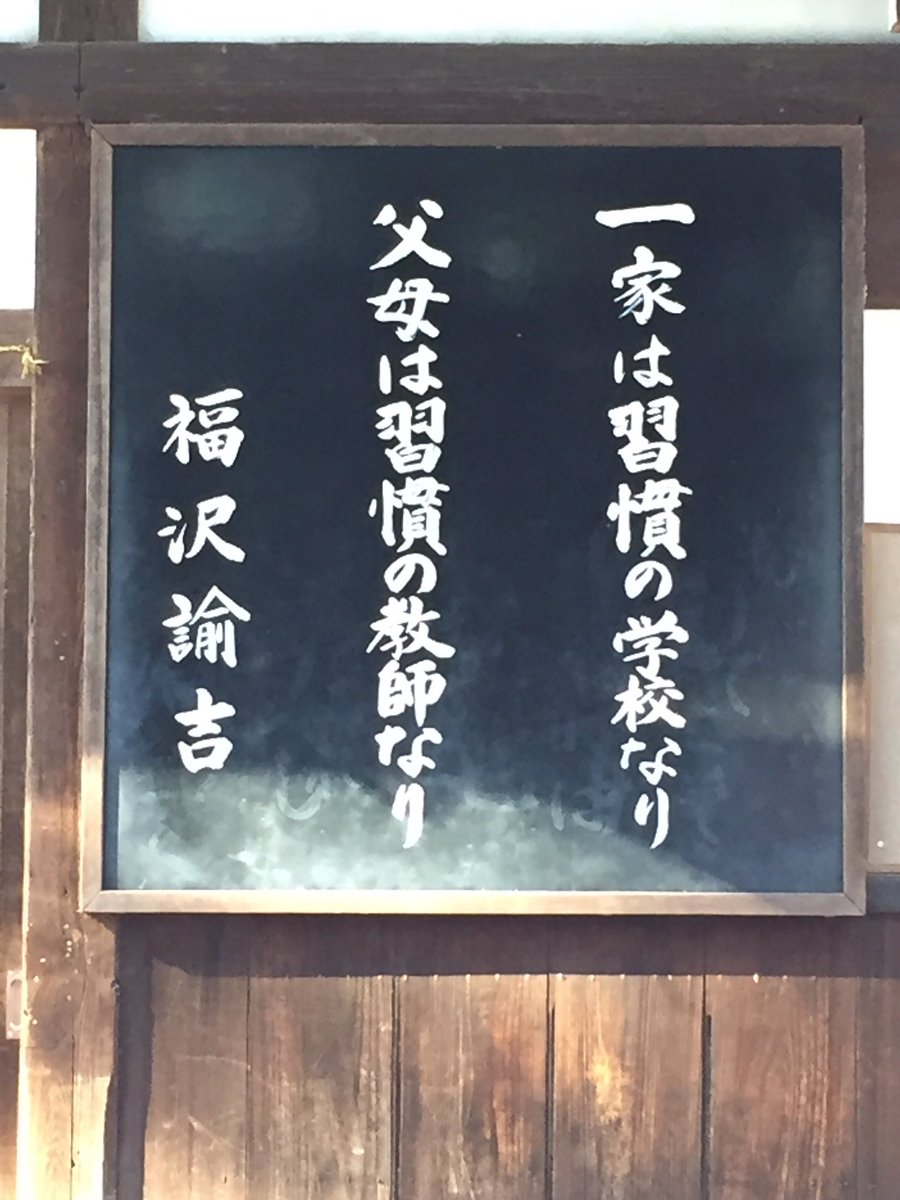 一家は習慣の学校なり
父母は習慣の教師なり
福沢諭吉